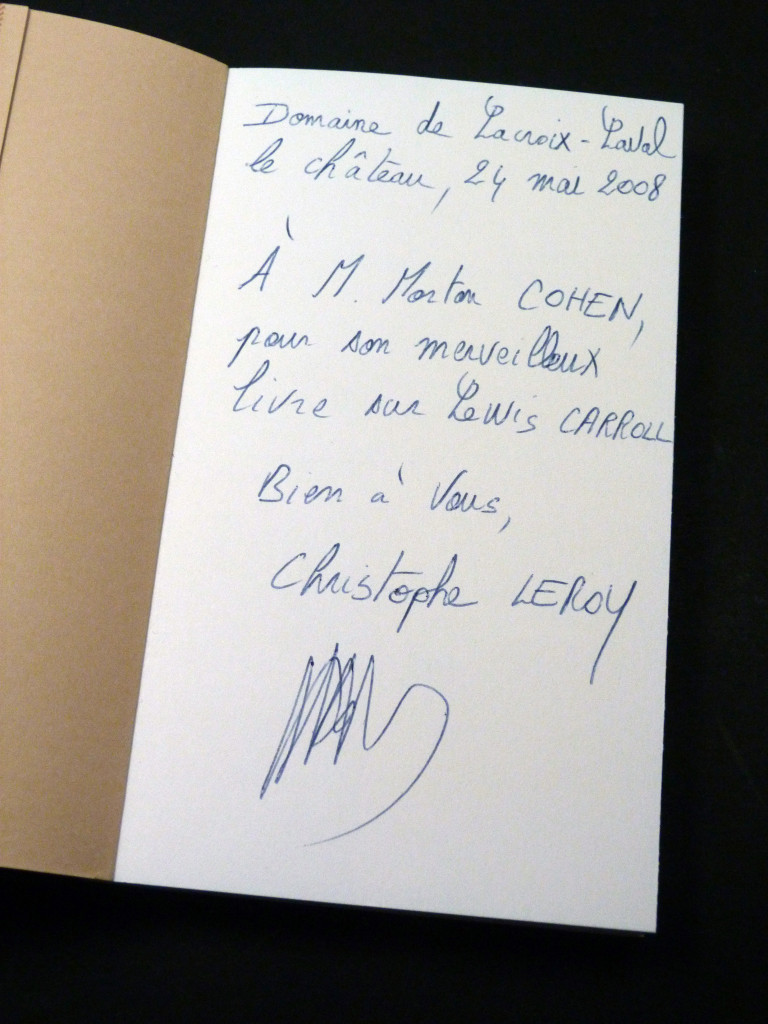 Domaine de Lacroix-Laval
le château, 24 mai 2008
À M. Morton COHEN,
pour son merveilleux
livre sur Lewis CARROLL
Bien à Vous,
Christophe LEROY